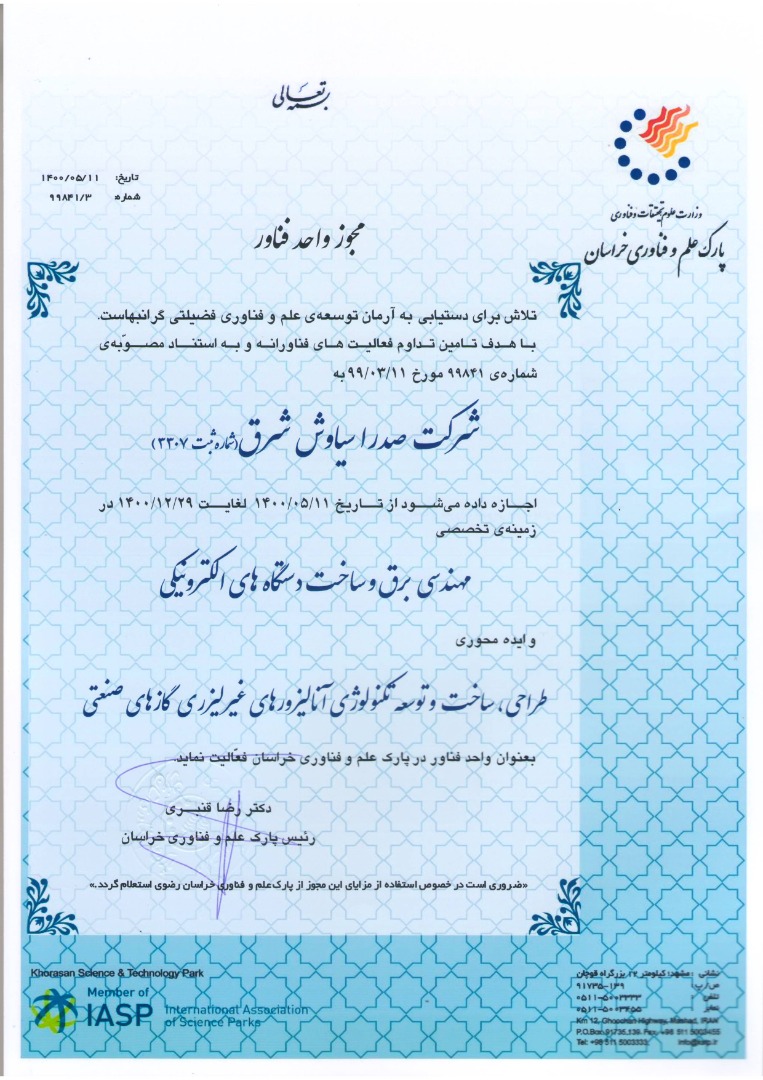 بسمه تعالی
تاریخ: ۱۴۰۰/۰۵/۱۱
شماره: ۹۹۸۴۱/۳
وزارت علوم تحقیقات و فناوری
پارک علم و فناوری خراسان
مجوز واحد فناور
تلاش برای دستیابی به آرمان توسعه‌ی علم و فناوری فضیلتی گرانبهاست.
با هدف تامین تداوم فعالیت های فناورانه و به استناد مصوّبه‌ی
شماره‌ی ۹۹۸۴۱ مورخ ۹۹/۰۳/۱۱ به
شرکت صدرا سیاوش شرق (شماره ثبت ۳۳۰۷)
اجازه داده می‌شود از تاریخ ۱۴۰۰/۰۵/۱۱ لغایت ۱۴۰۰/۱۲/۲۹ در
زمینه‌ی تخصصی
مهندسی برق و ساخت دستگاه های الکترونیکی
و ایده محوری
طراحی، ساخت و توسعه تکنولوژی آنالیزورهای غیرلیزری گازهای صنعتی
بعنوان واحد فناور در پارک علم و فناوری خراسان فعّالیت نماید.
دکتر رضا قنبری
رئیس پارک علم و فناوری خراسان
«ضروری است در خصوص استفاده از مزایای این مجوز از پارک علم و فناوری خراسان رضوی استعلام گردد.»
Khorasan Science & Technology Park
Member of
IASP
International Association
of Science Parks
نشانی : مشهد: کیلومتر ۱۲ بزرگراه قوچان
ص/پ: ۹۱۷۳۵-۱۳۹
تلفن: ۰۵۱۱-۵۰۰۳۳۳۳
نمابر: ۰۵۱۱-۵۰۰۳۴۵۵
Km 12, Ghoochan Highway, Mashad, IRAN
P.O.Box: 91735.139. Fax: +98 511 5003455
Tel: +98 511 5003333;